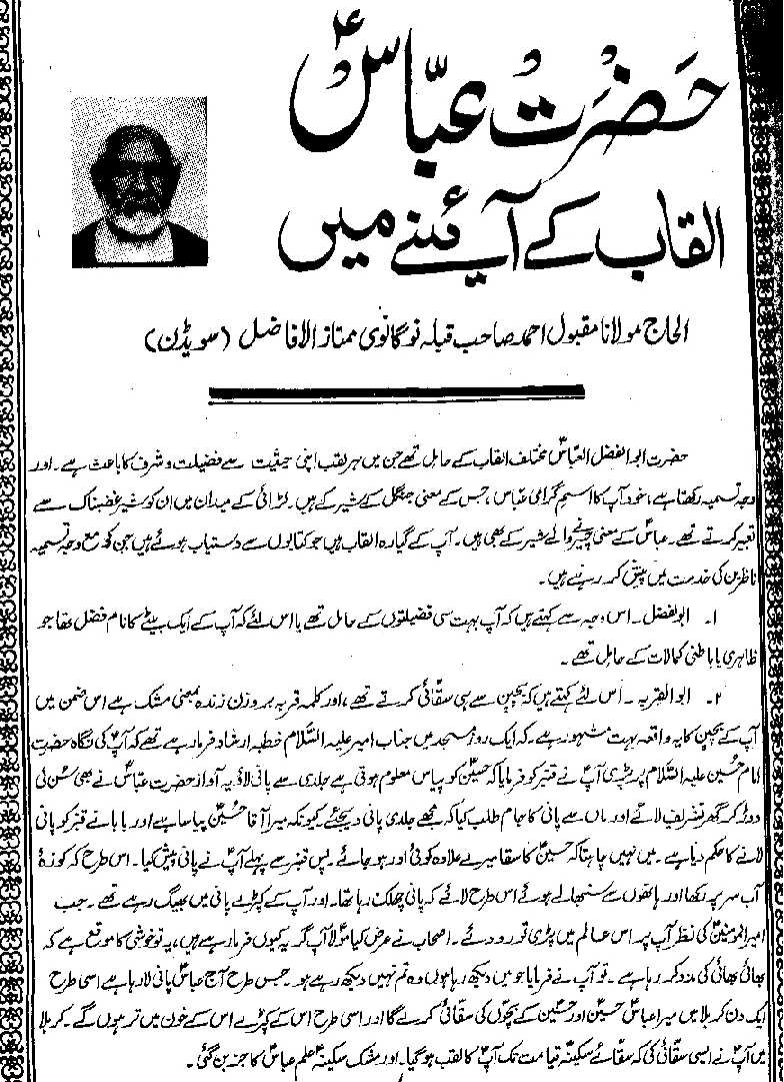 حضرت عباسؑ
القاب کے آئینے میں
الحاج مولانا مقبول احمد صاحب قبلہ نوگانوی ممتاز الافاضل (سویڈن)
حضرت ابوالفضل العباسؑ مختلف القاب کے حامل تھے جن میں ہر لقب اپنی حیثیت سے فضیلت و شرف کا باعث ہے۔ اور
وجہ تسمیہ رکھتا ہے، خود آپ کا اسم گرامی عباس، جس کے معنی جنگل کے شیر کے ہیں۔ لڑائی کے میدان میں ان کو شیر غضبناک سے
تعبیر کرتے تھے۔ عباسؑ کے معنی چیرنے والے شیر کے بھی ہیں۔ آپ کے گیارہ القاب ہیں جو کتابوں سے دستیاب ہوئے ہیں جن کو مع وجہ تسمیہ
ناظرین کی خدمت میں پیش کر رہے ہیں۔
۱۔ ابوالفضل۔ اس وجہ سے کہتے ہیں کہ آپ بہت سی فضیلتوں کے حامل تھے یا اس لئے کہ آپ کے ایک بیٹے کا نام فضل تھا جو
ظاہری یا باطنی کمالات کے حامل تھے۔
۲۔ ابوالقربہ۔ اس لئے کہتے ہیں کہ بچپن سے ہی سقائی کرتے تھے، اور کلمہ قربہ بروزن زندہ بمعنی مشک ہے اس ضمن میں
آپ کے بچپن کا یہ واقعہ بہت مشہور ہے۔ کہ ایک روز مسجد میں جناب امیر علیہ السّلام خطبہ ارشاد فرما رہے تھے کہ آپؑ کی نگاہ حضرت
امام حسین علیہ السّلام پر پڑی آپؑ نے قنبر کو فرمایا کہ حسینؑ کو پیاس معلوم ہوتی ہے جلدی سے پانی لاؤ یہ آواز حضرت عباسؑ نے بھی سُن لی
دوڑ کر گھر تشریف لائے اور ماں سے پانی کا جام طلب کیا کہ مجھے جلدی پانی دیجئے کیونکہ میرا آقا حسینؑ پیاسا ہے اور بابا نے قنبر کو پانی
لانے کا حکم دیا ہے۔ میں نہیں چاہتا کہ حسینؑ کا سقا میرے علاوہ کوئی اور ہو جائے۔ پس قنبر سے پہلے آپؑ نے پانی پیش کیا۔ اس طرح کہ کوزۂ
آب سر پہ رکھا اور ہاتھوں سے سنبھالے ہوئے اس طرح لائے کہ پانی چھلک رہا تھا۔ اور آپ کے کپڑے پانی میں بھیگ رہے تھے۔ جب
امیر المومنینؑ کی نظر آپ پر اس عالم میں پڑی تو رو دئے۔ اصحاب نے عرض کیا مولا آپ گریہ کیوں فرما رہے ہیں، یہ تو خوشی کا موقع ہے کہ
بھائی بھائی کی مدد کر رہا ہے۔ تو آپ نے فرمایا جو میں دیکھ رہا ہوں وہ تم نہیں دیکھ رہے ہو۔ جس طرح آج عباسؑ پانی لا رہا ہے اسی طرح
ایک دن کربلا میں میرا عباسؑ حسینؑ اور حسینؑ کے بچّوں کی سقائی کرے گا اور اسی طرح اس کے کپڑے اس کے خون میں تر ہوں گے۔ کربلا
میں آپؑ نے ایسی سقائی کی کہ سقائے سکینہؑ قیامت تک آپؑ کا لقب ہو گیا۔ اور مشک سکینہؑ علم عباسؑ کا جز بن گئی۔